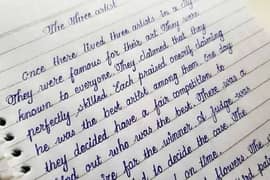 The Three artist
Once there lived three artists in a city
They were famous for their art. They were
known to everyone. They claimed that they
perfectly skilled. Each praised nearly claiming
he was the best artist among them. One day
they decided have a fair competition to
find out who was the best. There was a
for the winner. A judge was
to decide the case. The
on time.
flowers. The